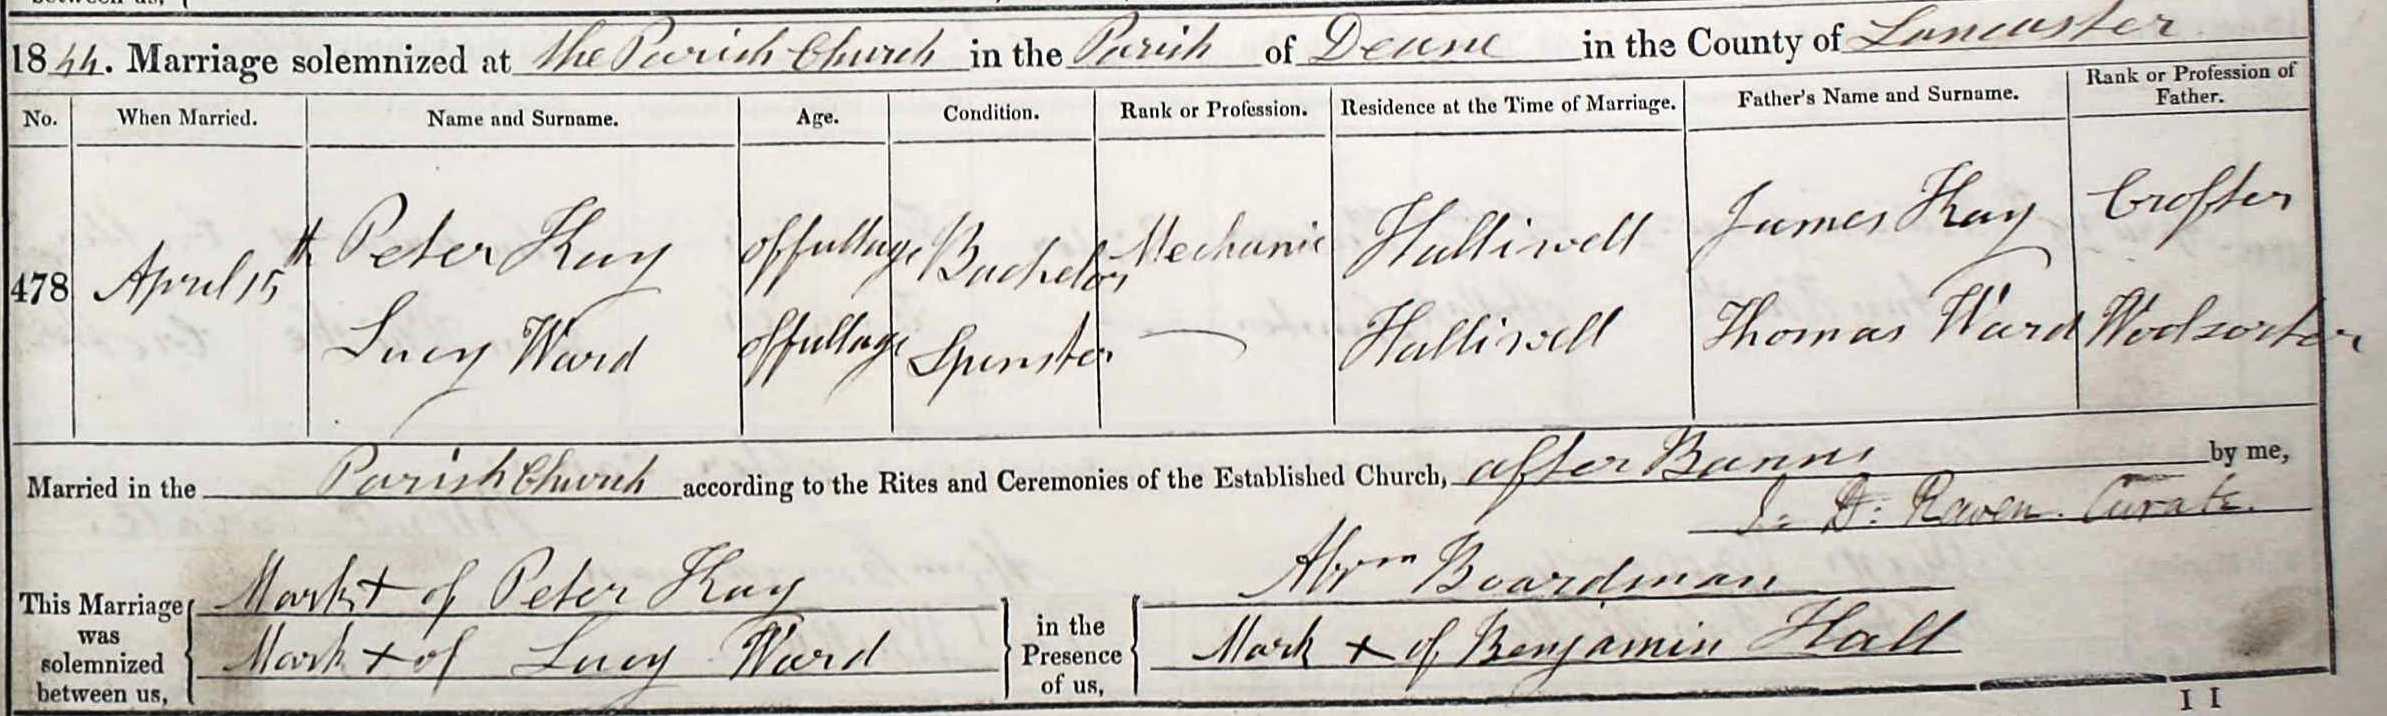 between us,
1844. Marriage solemnized at the Parish Church in the Parish of Deane in the County of Lancaster
No. When Married. Name and Surname. Age. Condition. Rank or Profession. Residence at the Time of Marriage. Father's Name and Surname. Rank or Profession of Father.
478 April 15th Peter Kay of full age Bachelor Mechanic Halliwell James Kay Crofter
Lucy Ward of full age Spinster — Halliwell Thomas Ward Woolsorter
Married in the Parish Church according to the Rites and Ceremonies of the Established Church, after Banns by me,
J. D. Raven. Curate.
This Marriage was solemnized between us,
Mark + of Peter Kay
Mark + of Lucy Ward
in the Presence of us,
Abrm Boardman
Mark + of Benjamin Hall
I I